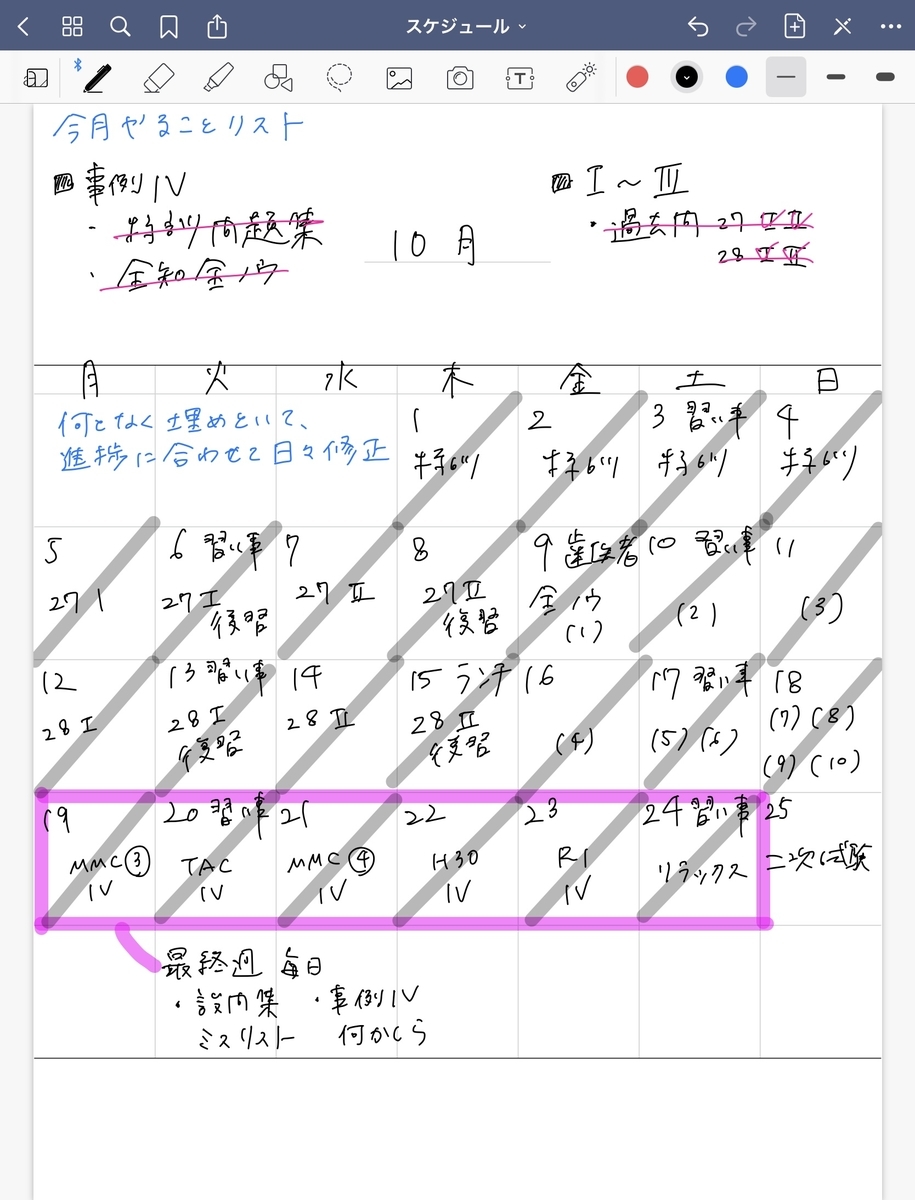 スケジュール
今月やることリスト
事例IV
・特訓問題集
・全知全ノウ
10月
I～III
・過去問 27 I II
28 I II
月 火 水 木 金 土 日
何となく埋めといて、
進捗に合わせて日々修正
1 2 3 習い事 4
特くん 特くん 特くん 特くん
5 6 習い事 7 8 9 歯医者 10 習い事 11
27 I 27 I 復習 27 II 27 II 復習 全ノウ (1) (2) (3)
12 13 習い事 14 15 ランチ 16 17 習い事 18
28 I 28 I 復習 28 II 28 II 復習 (4) (5) (6) (7) (8)
(9) (10)
19 20 習い事 21 22 23 24 習い事 25
MMC③ TAC MMC④ H30 R1 リラックス 二次試験
IV IV IV IV IV
最終週 毎日
・設問集 ・事例IV
ミスリスト 何かしら